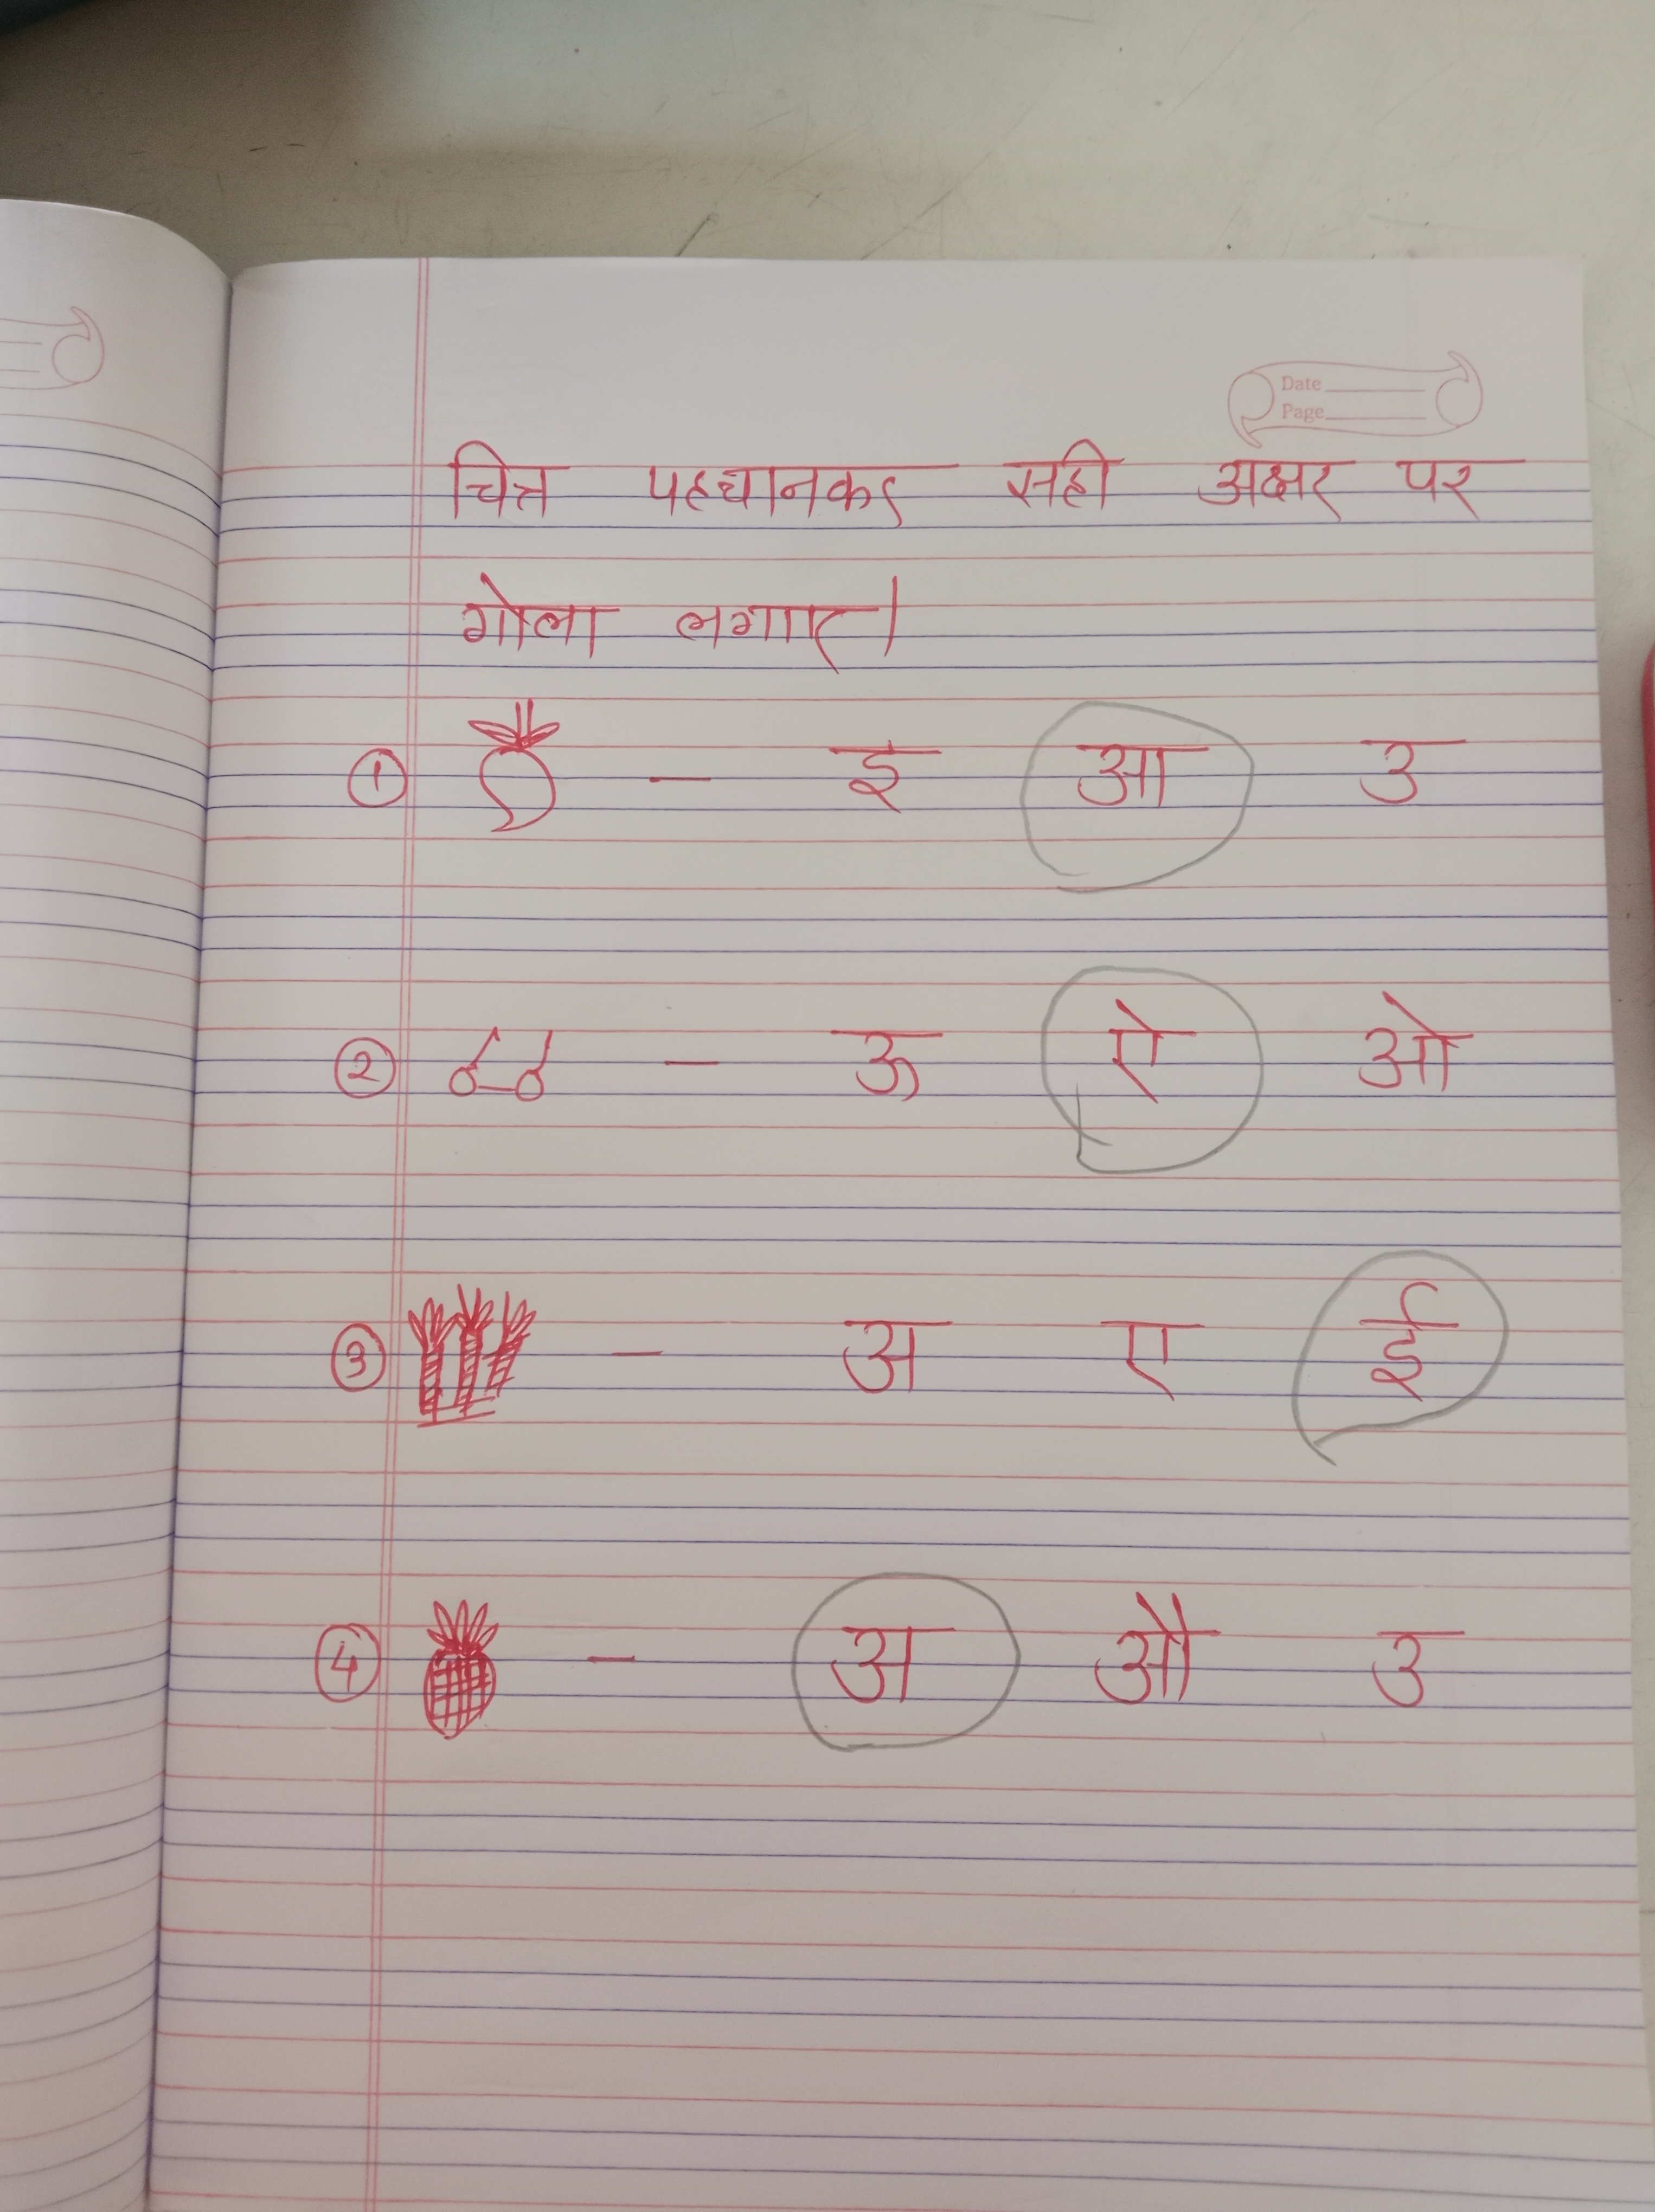 Date
Page
चित्र पहचानकर सही अक्षर पर
गोला लगाए।
① - इ आ उ
② - ऊ ऐ ओ
③ - अ ए ई
④ - अ औ उ